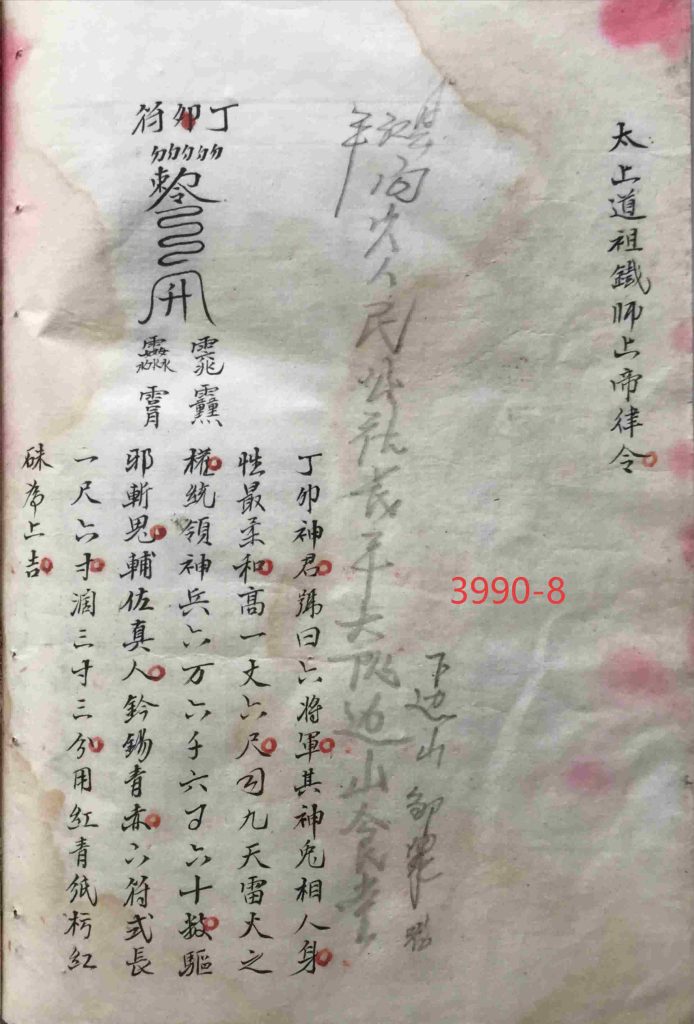 太上道祖鐵師上帝律令
人民公社長平大隊边山食堂
下边山
3990-8
丁卯符
敕令
丁卯神君號曰六將軍其神兔相人身
性最柔和高一丈六尺司九天雷火之
權統領神兵六万六千六百六十数驅
邪斬鬼輔佐真人鈐錫青赤六符式長
一尺六寸濶三寸三分用紅青紙杇紅
硃為上吉